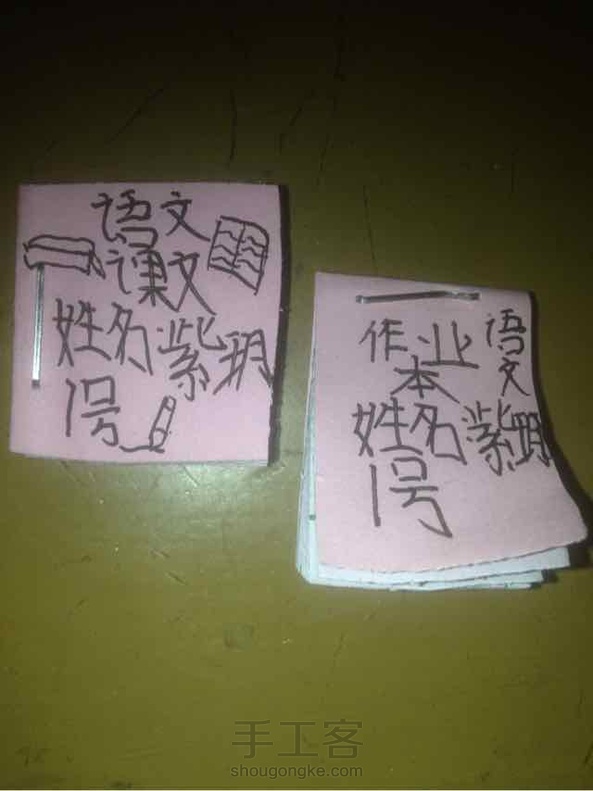 语文
课文
姓名紫玥
1号
作业
本
语文
姓名紫玥
1号
手工客
shougongke.com